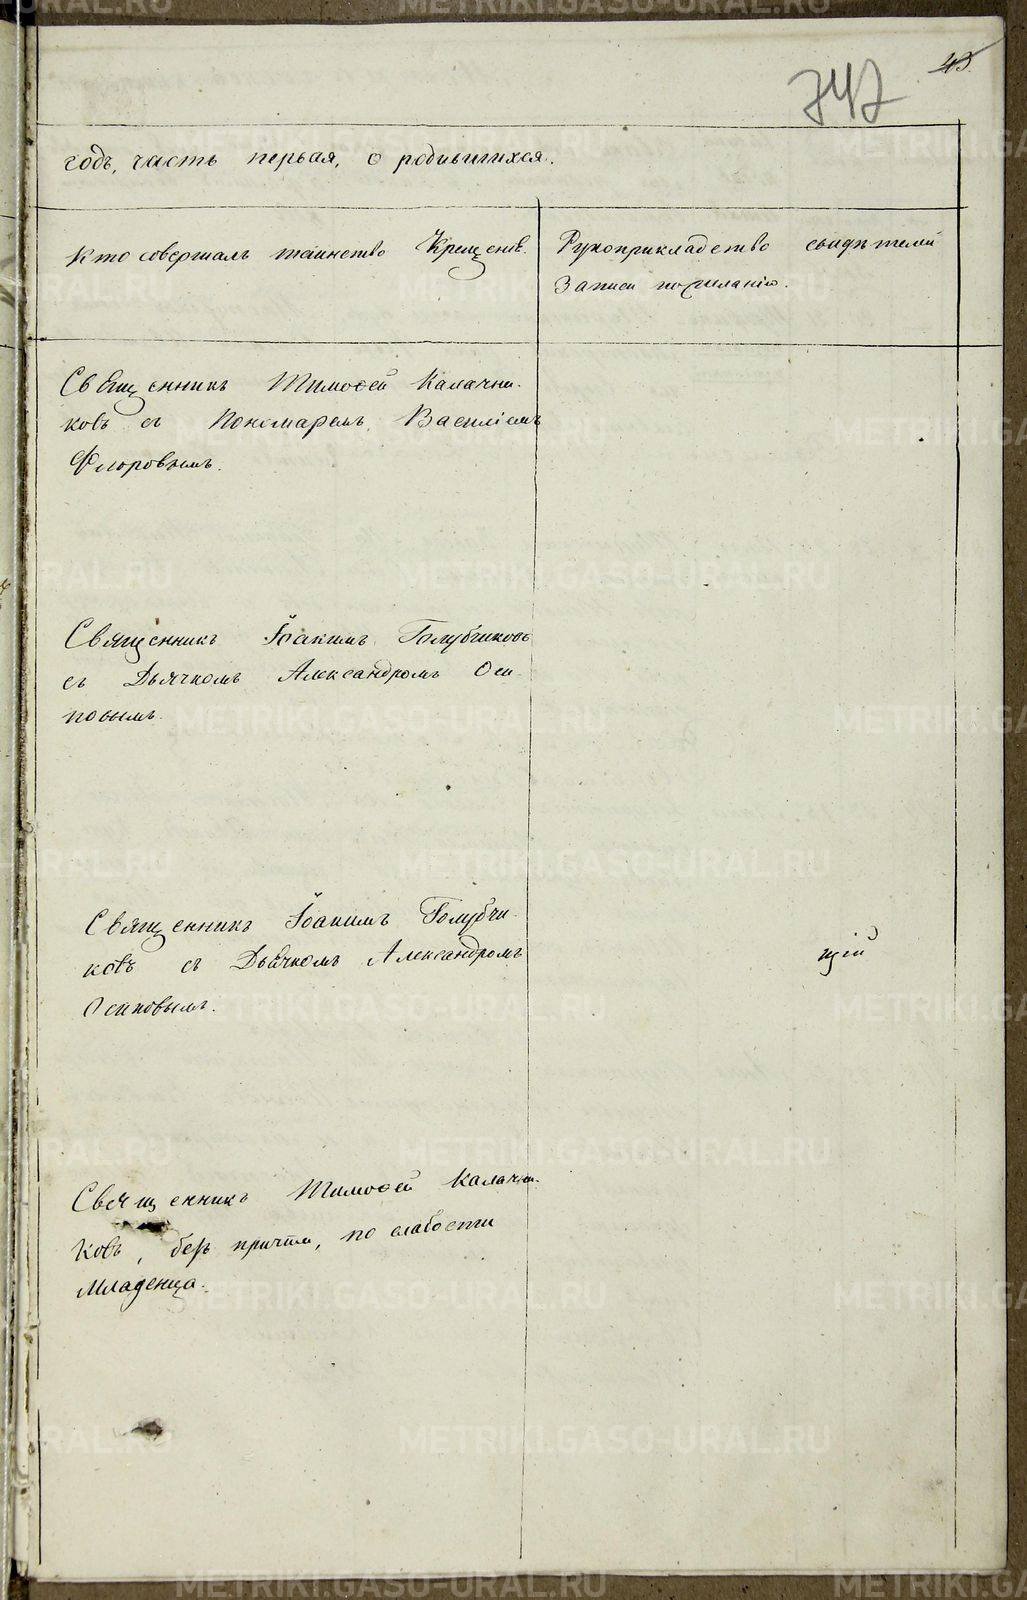 43.
747
годъ, часть первая, о родившихся.
Кто совершалъ таинство Крещенія.
Рукоприкладство свидѣтелей
записи по желанію.
Священникъ Тимоѳей Калачни-
ковъ съ Пономаремъ Василіемъ
Флоровымъ.
Священникъ Іоакимъ Голубчиковъ
съ Дьячкомъ Александромъ Оси-
повымъ.
Священникъ Іоакимъ Голубчи-
ковъ съ Дьячкомъ Александромъ
Осиповымъ.
щій
Священникъ Тимоѳей Калачни-
ковъ, безъ причта, по слабости
младенца.
METRIKI.GASO-URAL.RU